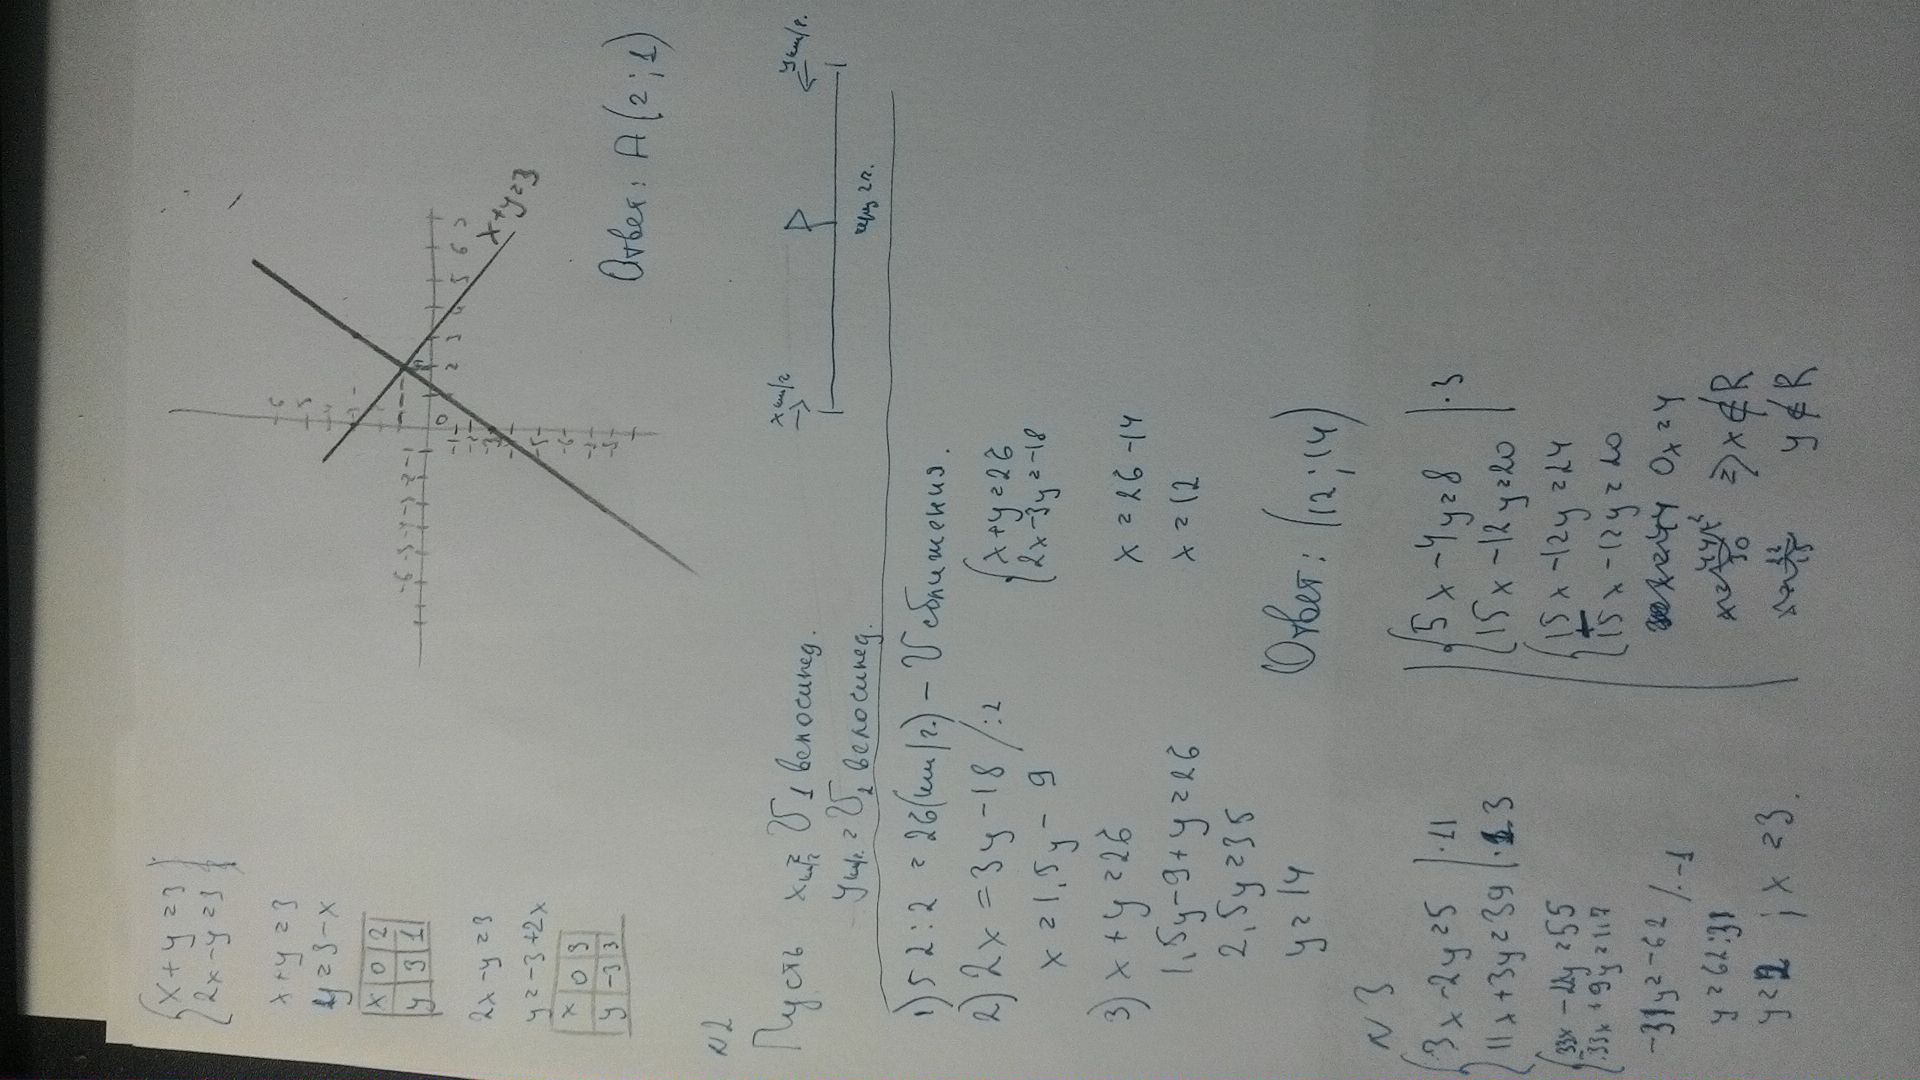 x + y = 3
2x - y = 3
x + y = 3
y = 3 - x
x 0 2
y 3 1
2x - y = 3
y = -3 + 2x
x 0 3
y -3 3
x+y=3
Ответ: А(2;1)
N2
Пусть x км/г = V1 велосипед.
y км/г. = V2 велосипед.
x км/г
y км/г.
через 2г.
1) 52 : 2 = 26 (км/г.) - V сближения.
2) 2x = 3y - 18 / :2
x = 1,5y - 9
3) x + y = 26
1,5y - 9 + y = 26
2,5y = 35
y = 14
x + y = 26
2x - 3y = -18
x = 26 - 14
x = 12
Ответ: (12;14)
N3
3x - 2y = 5 | ·11
11x + 3y = 39 | ·3
33x - 22y = 55
33x + 9y = 117
-31y = -62 / ·-1
y = 62:31
y = 2 ; x = 3.
5x - 4y = 8 | ·3
15x - 12y = 20
15x - 12y = 24
15x - 12y = 20
0x = 4
=> x ∉ R
y ∉ R